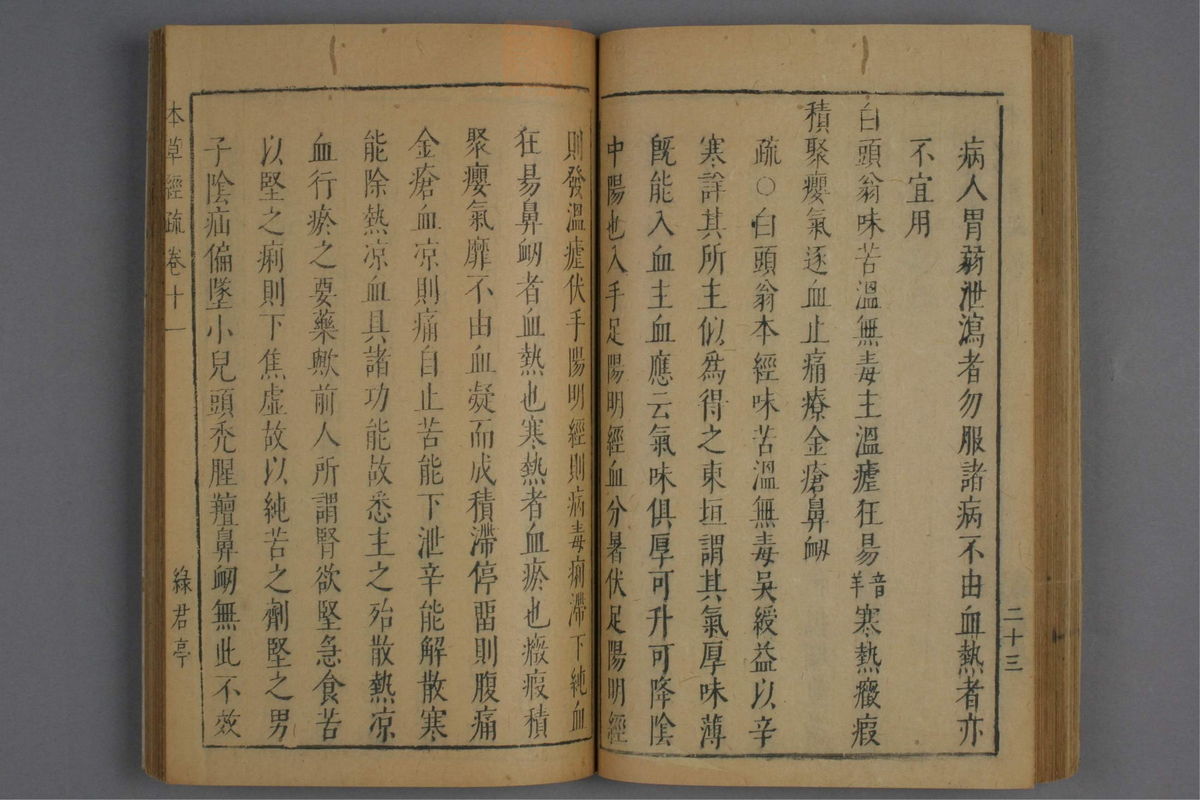 病人胃弱泄瀉者勿服諸病不由血熱者亦
不宜用
白頭翁味苦溫無毒主溫瘧狂昜音羊寒熱癥瘕
積聚癭氣逐血止痛療金瘡鼻衂
疏○白頭翁本經味苦溫無毒吳綬益以辛
寒詳其所主似爲得之東垣謂其氣厚味薄
既能入血主血應云氣味俱厚可升可降陰
中陽也入手足陽明經血分暑伏足陽明經
二十三
則發溫瘧伏手陽明經則病毒痢滯下純血
狂昜鼻衂者血熱也寒熱者血瘀也癥瘕積
聚癭氣靡不由血凝而成積滯停畱則腹痛
金瘡血凉則痛自止苦能下泄辛能解散寒
能除熱凉血具諸功能故悉主之殆散熱凉
血行瘀之要藥歟前人所謂腎欲堅急食苦
以堅之痢則下焦虛故以純苦之劑堅之男
子陰疝偏墜小兒頭禿腥羶鼻衂無此不效
本草經疏卷十一
綠君亭